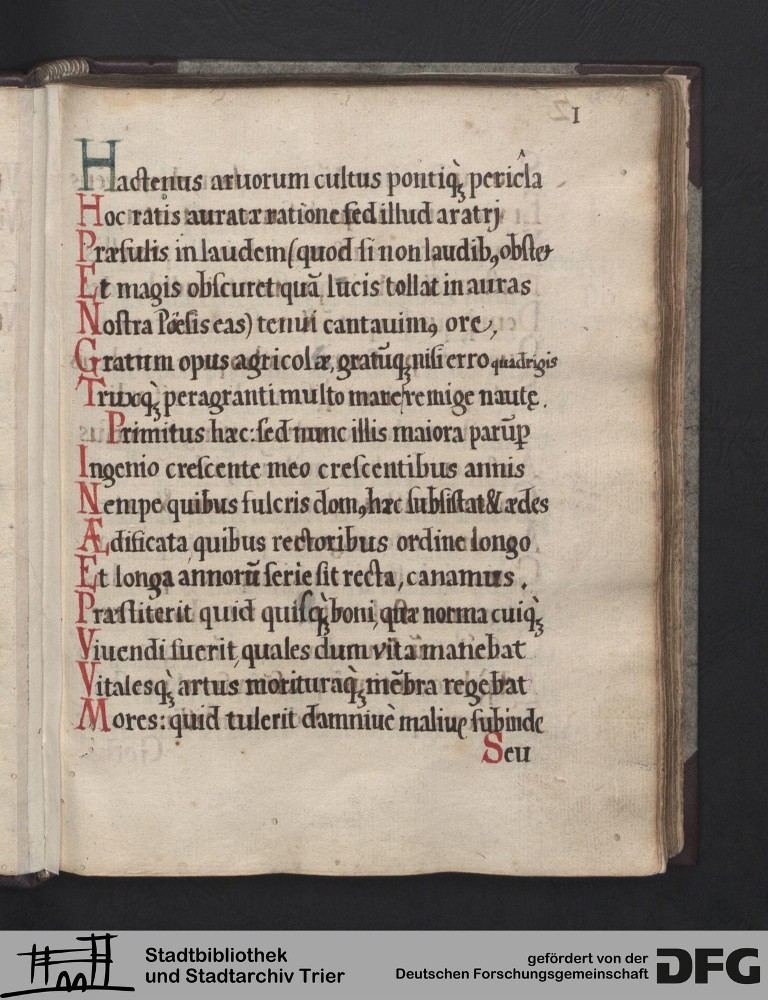 1
Hactenus aruorum cultus pontiq̀ꝫ pericl̂a
Hoc ratis auratæ ratione sed illud aratrj
Præsulis in laudem (quod si non laudibꝰ obstet
Et magis obscuret quā lucis tollat in auras
Nostra Pöesis eas) tenui cantauimꝰ ore,
Gratum opus agricolæ, gratūqꝫ, nisi erro quadrigis
Triuoq̀ꝫ peragranti multo mane remige nautę.
Primitus hæc: sed nunc illis maiora parūp
Ingenio crescente meo crescentibus annis
Nempe quibus fulcris domꝰ hæc subsistat & ædes
Ædificata quibus rectoribus ordine longo
Et longa annorū serie sit recta, canamus.
Præstiterit quid quisq̀ꝫ boni, quæ norma cuiq̀ꝫ
Viuendi fuerit, quales dum vita manebat
Vitalesq̀ꝫ artus morituraq̀ꝫ mēbra regebat
Mores: quid tulerit damniuè maliuę subinde
Seu
Stadtbibliothek
und Stadtarchiv Trier
gefördert von der
Deutschen Forschungsgemeinschaft
DFG